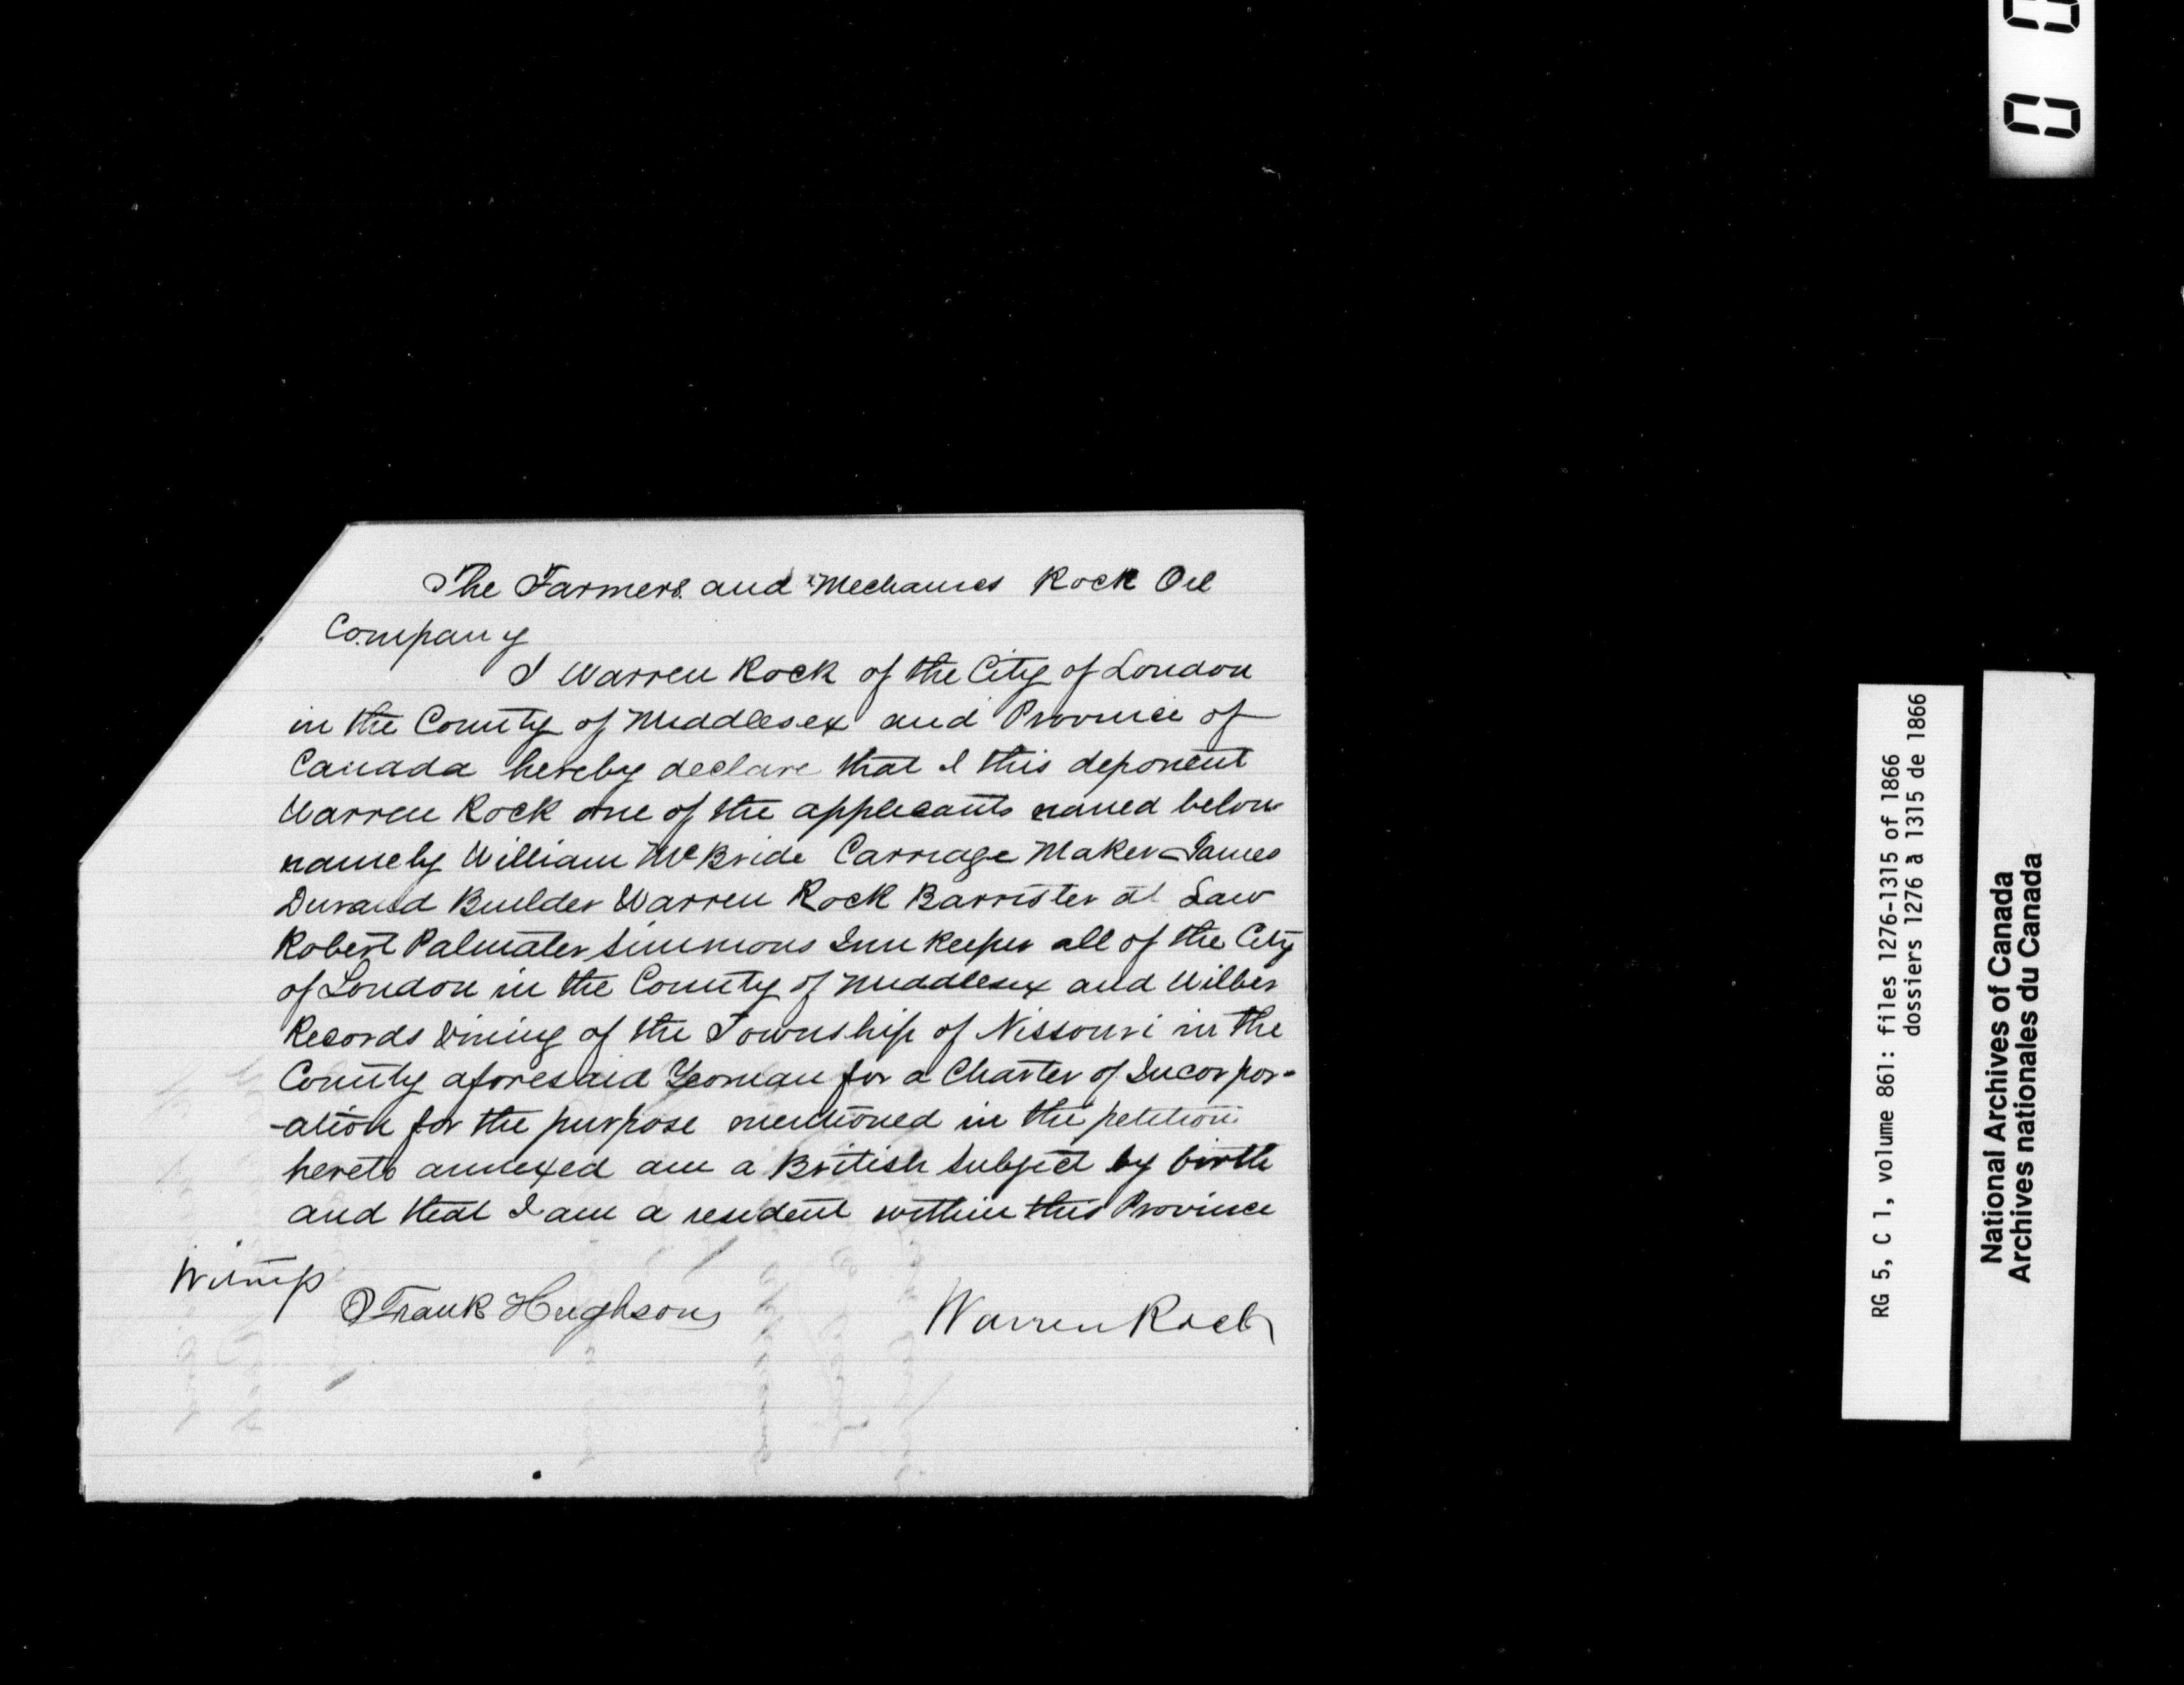 The Farmers and Mechanics Rock Oil
Company
I Warren Rock of the City of London
in the County of Middlesex and Province of
Canada hereby declare that I this deponent
Warren Rock one of the applicants named below
namely William McBride Carriage Maker James
Durand Builder Warren Rock Barrister at Law
Robert Palmater Simmons Inn Keeper all of the City
of London in the County of Middlesex and Wilber
Records Vining of the Township of Nissouri in the
County aforesaid Yeoman for a Charter of Incorpor-
-ation for the purpose mentioned in the petition
hereto annexed am a British Subject by birth
and that I am a resident within this Province
Witness
Frank Hughson
Warren Rock
RG 5, C 1, volume 861: files 1276-1315 of 1866
dossiers 1276 à 1315 de 1866
National Archives of Canada
Archives nationales du Canada